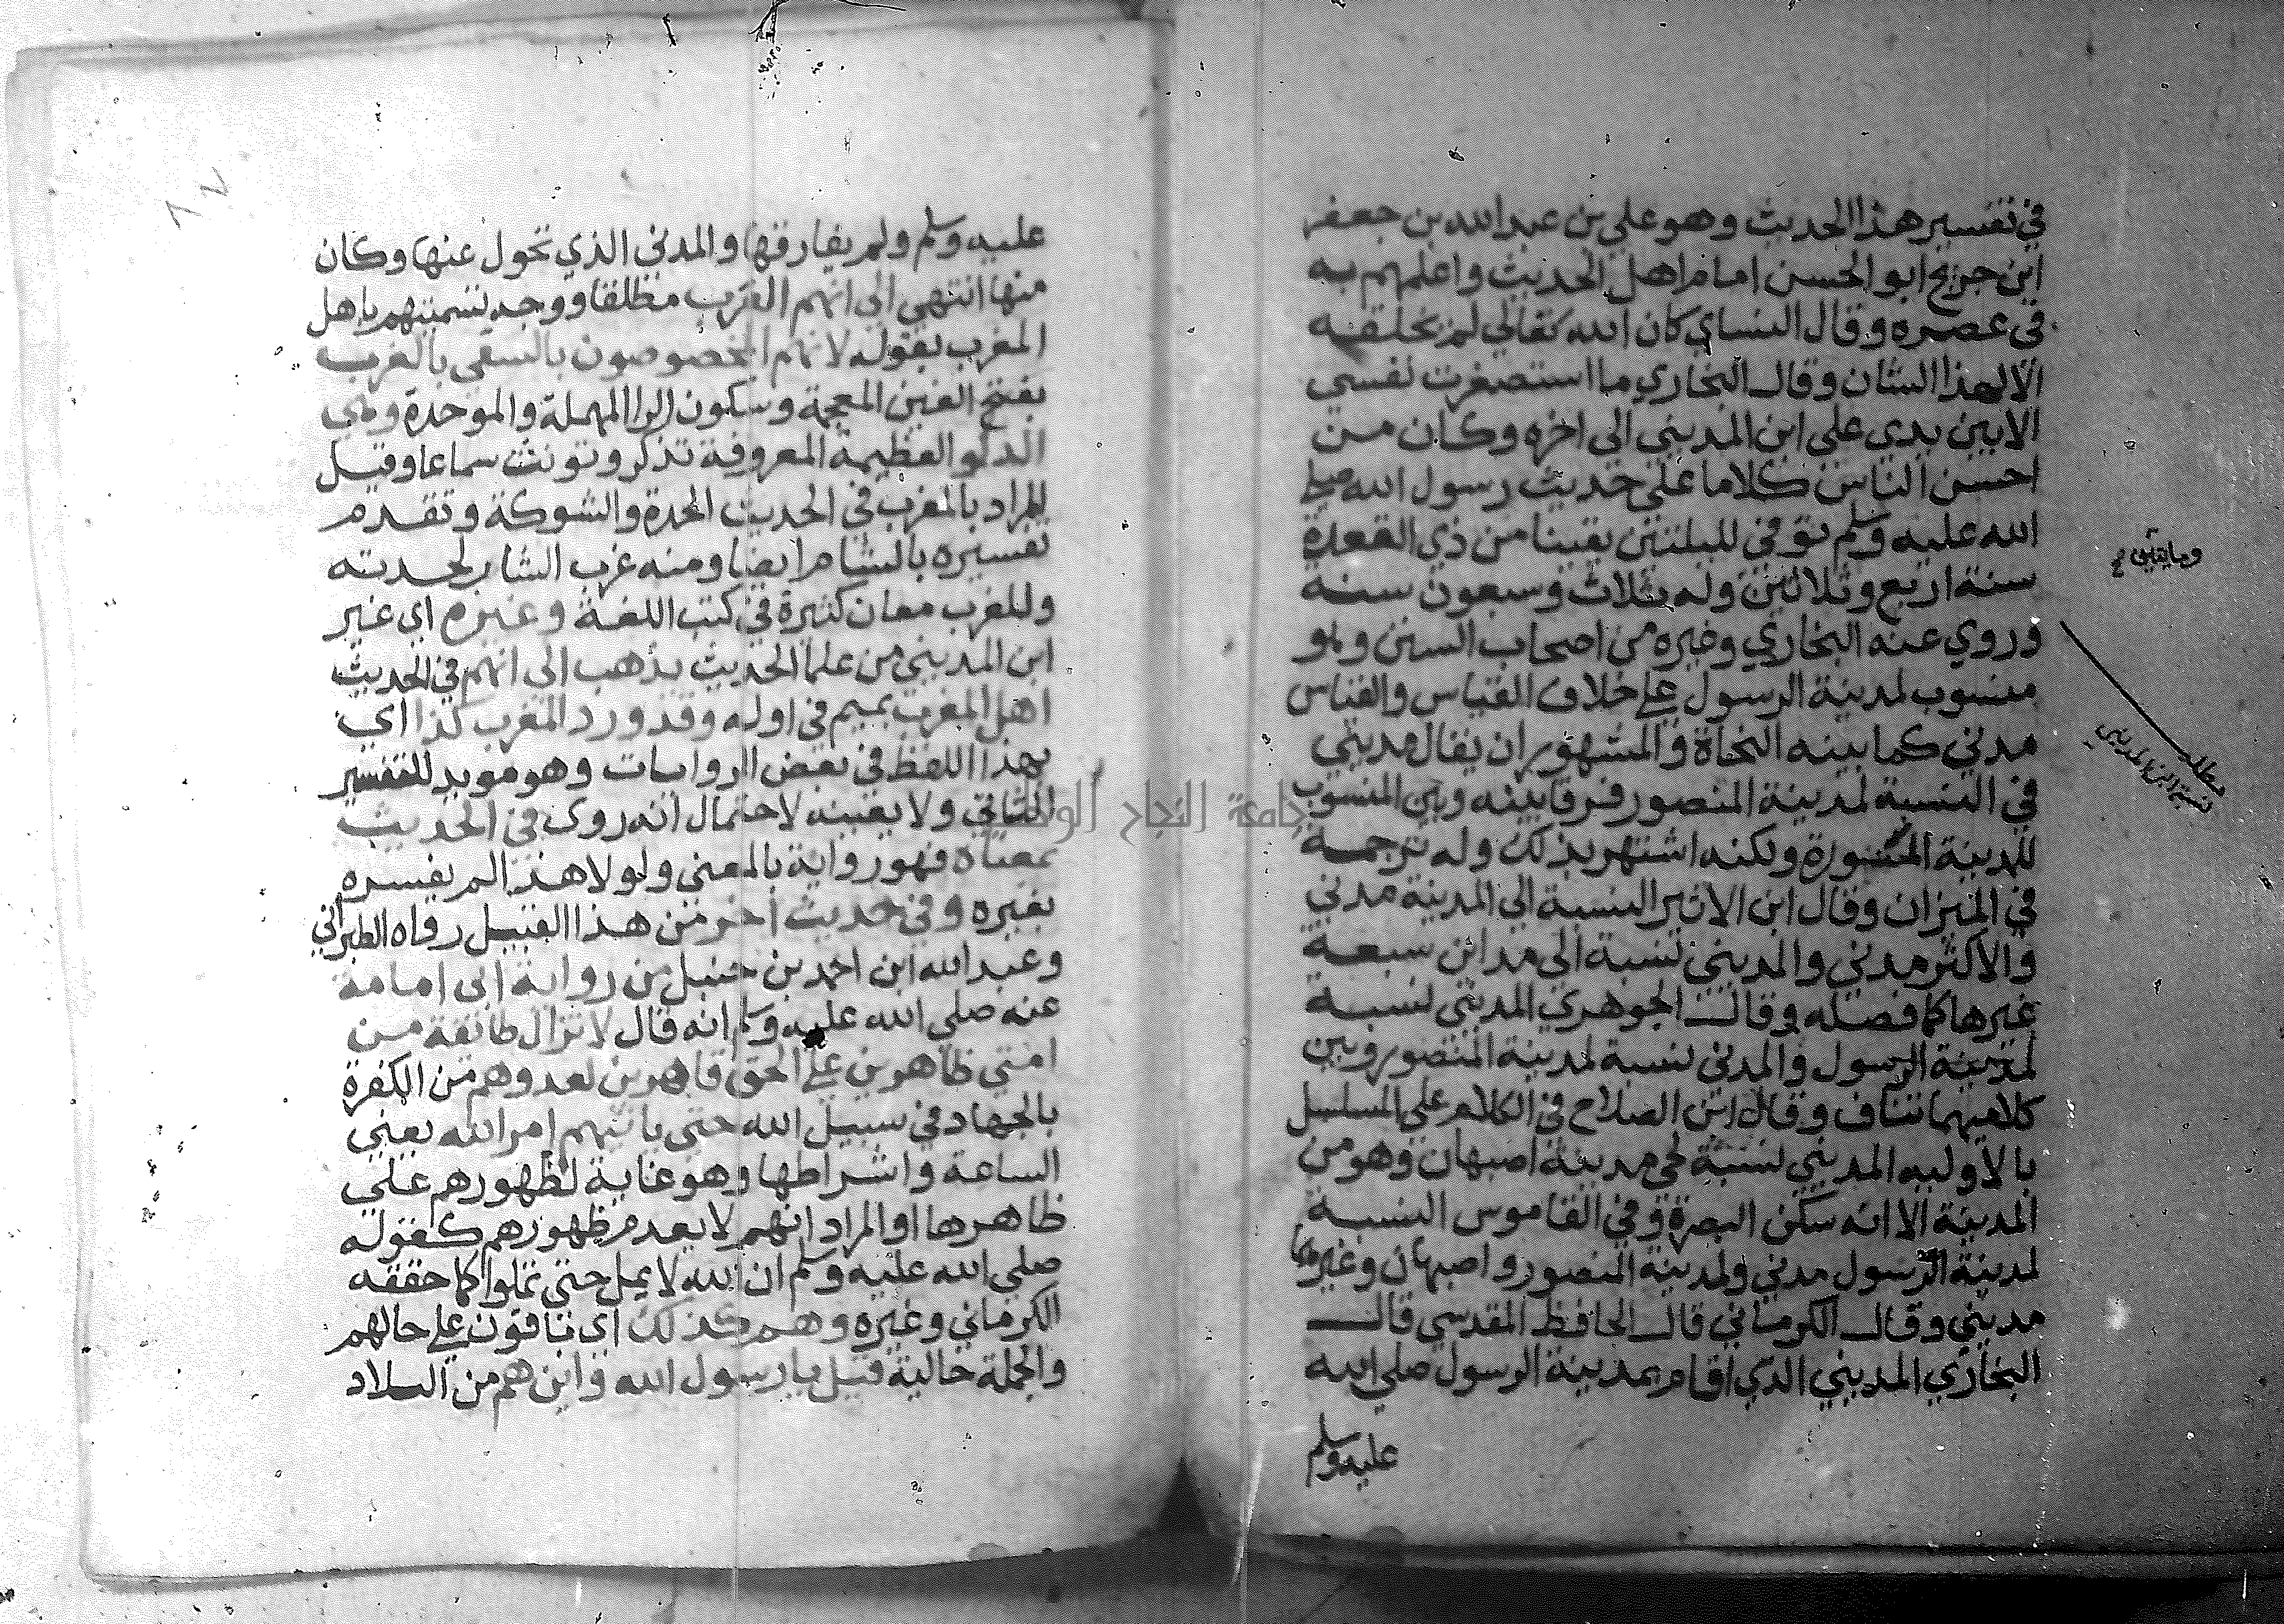 في تفسير هذا الحديث وهو علي بن عبد الله بن جعفر
ابن جريح ابو الحسن امام اهل الحديث واعلمهم به
في عصره وقال النساي كان الله تعالي لم يخلقه
الا لهذا الشان وقال البخاري ما استصغرت نفسي
الا بين يدي علي ابن المديني الى اخره وكان من
احسن الناس كلاما على حديث رسول الله صلي
الله عليه وسلم توفي لليلتين بقيتا من ذي القعدة
سنة اربع وثلاثين وله ثلاث وسبعون سنة
وروي عنه البخاري وغيره من اصحاب السنن وهو
منسوب لمدينة الرسول على خلاف القياس والقياس
مدني كما بينه النحاة والمشهور ان يقال مديني
في النسبة لمدينة المنصور فرقا بينه وبين المنسوب
للمدينة المنورة ولكنه اشتهر بذلك وله ترجمة
في الميزان وقال ابن الاثير النسبة الي المدينة مدني
والاكثر مدني والمديني نسبة الي مداين سبعة
غيرها كما فصله وقال الجوهري المديني نسبة
لمدينة الرسول والمدني نسبة لمدينة المنصور وبين
كلاميهما تناف وقال ابن الصلاح في الكلام على المسلسل
بالاوليه المديني نسبة لحي مدينة اصبهان وهو من
المدينة الا انه سكن البصرة وفي القاموس النسبة
لمدينة الرسول مدني ولمدينة المنصور واصبهان وغيرهما
مديني وقال الكرماني قال الحافظ المقدسي قال
البخاري المديني الذي اقام بمدينة الرسول صلي الله
عليه وسلم
ومايتين
مطلب
نسبة ابن المديني
عليه وسلم ولم يفارقها والمدني الذي تحول عنها وكان
منها انتهي الى انهم العرب مطلقا ووجه تسميتهم باهل
المغرب بقوله لانهم المخصوصون بالسقي بالغرب
بفتح الغين المعجمة وسكون الرا المهملة والموحدة وهي
الدلو العظيمة المعروفة تذكر وتونث سماعا وقيل
المراد بالمغرب في الحديث الحدة والشوكة وتقدم
تفسيره بالشام ايضا ومنه غرب الشا لحدته
وللغرب معان كثيرة في كتب اللغة وغيره اي غير
ابن المديني من علما الحديث يذهب الى انهم في الحديث
اهل المغرب بميم في اوله وقد ورد المغرب كذا اي
بهذا اللفظ في بعض الروايات وهو مويد للتفسير
الثاني ولا يعينه لاحتمال انه روى في الحديث
بمعناه فهو رواية بالمعني ولولا هذا لم يفسره
بغيره وفي حديث اخر من هذا القبيل رواه الطبراني
وعبد الله ابن احمد بن حنبل من رواية ابى امامة
عنه صلي الله عليه وسلم انه قال لا تزال طائفة من
امتي ظاهرين على الحق قاهرين لعدوهم من الكفرة
بالجهاد في سبيل الله حتى ياتيهم امر الله يعني
الساعة واشراطها وهو غاية لظهورهم علي
ظاهرها او المراد انهم لا يعدم ظهورهم كقوله
صلي الله عليه وسلم ان الله لا يمل حتي تملوا كما حققه
الكرماني وغيره وهم كذلك اي باقون على حالهم
والجملة حالية قيل يا رسول الله واين هم من البلاد